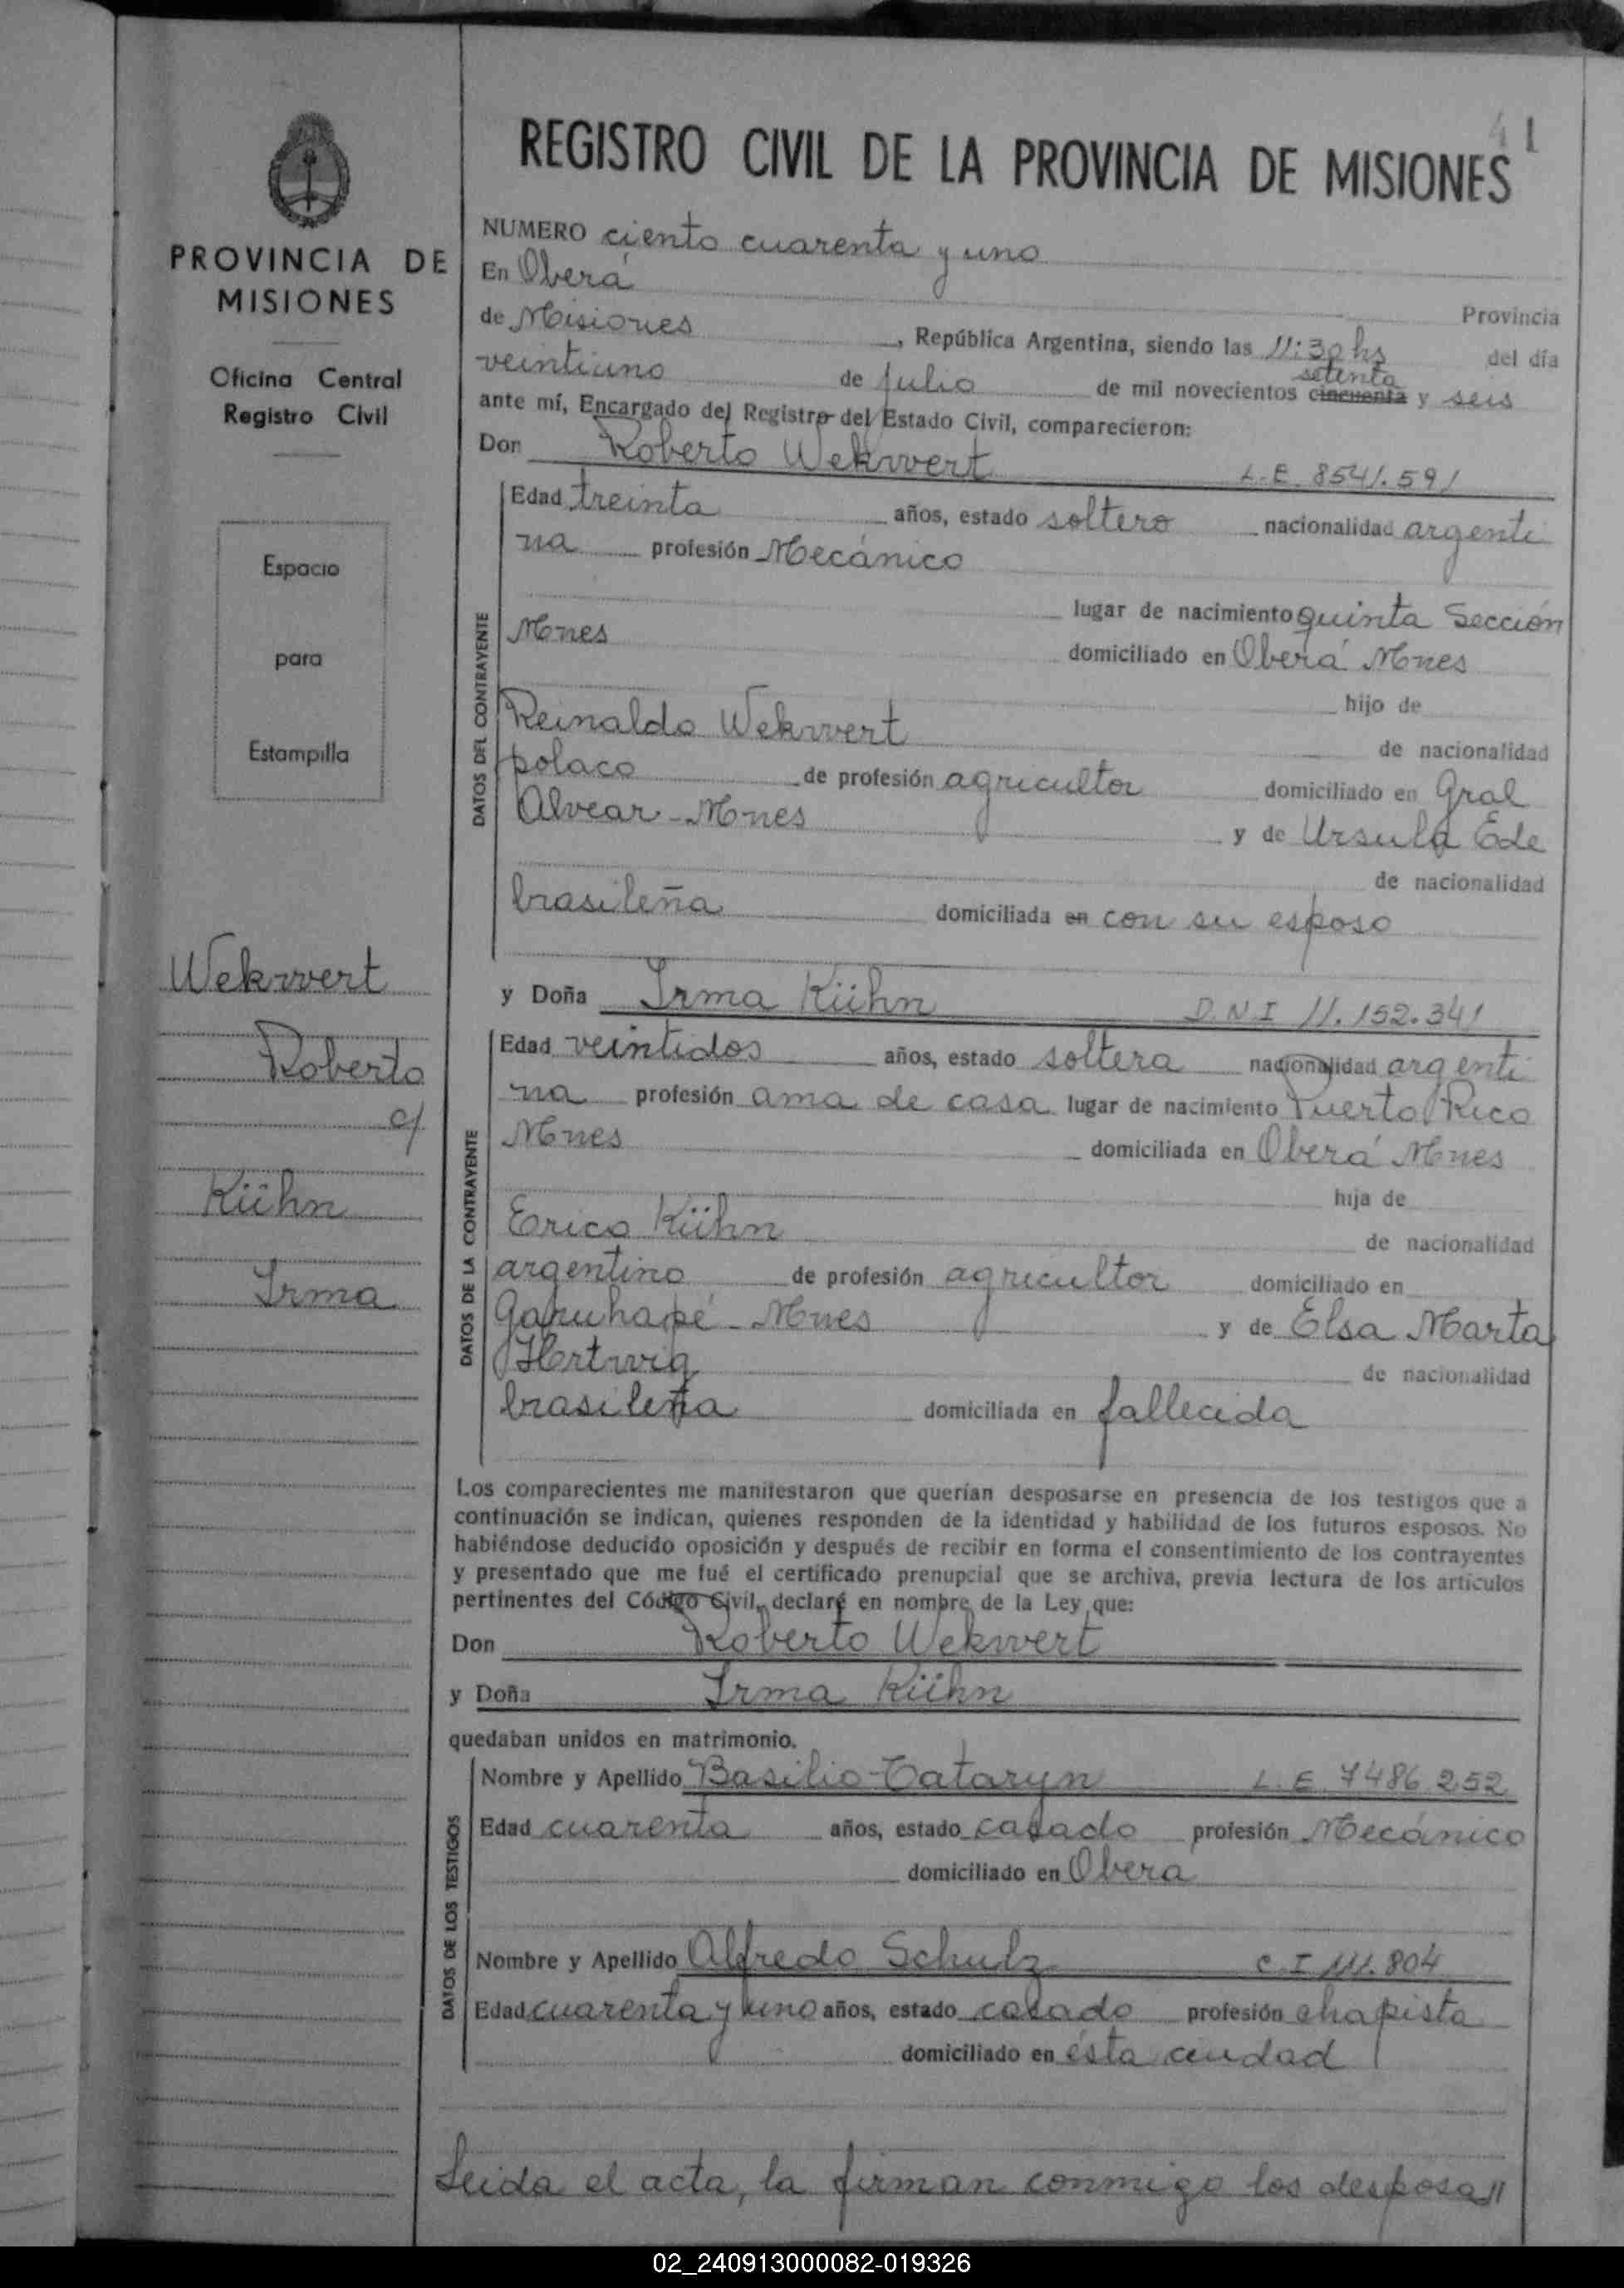 41
REGISTRO CIVIL DE LA PROVINCIA DE MISIONES
PROVINCIA DE
MISIONES
Oficina Central
Registro Civil
Espacio
para
Estampilla
Wekwert
Roberto
c/
Kühn
Irma
NUMERO ciento cuarenta y uno
En Oberá
Provincia
de Misiones, República Argentina, siendo las 11:30 hs del día
veintiuno de Julio de mil novecientos cincuenta setenta y seis
ante mí, Encargado del Registro del Estado Civil, comparecieron:
Don Roberto Wekwert L.E. 8541.591
DATOS DEL CONTRAYENTE
Edad treinta años, estado soltero nacionalidad argenti
na profesión Mecánico
lugar de nacimiento quinta Sección
Mnes domiciliado en Oberá Mnes
hijo de
Reinaldo Wekwert de nacionalidad
polaco de profesión agricultor domiciliado en Gral
Alvear - Mnes y de Ursula Ede
de nacionalidad
brasileña domiciliada en con su esposo
y Doña Irma Kühn D.N.I 11.152.341
DATOS DE LA CONTRAYENTE
Edad veintidos años, estado soltera nacionalidad argenti
na profesión ama de casa lugar de nacimiento Puerto Rico
Mnes domiciliada en Oberá Mnes
hija de
Erico Kühn de nacionalidad
argentino de profesión agricultor domiciliado en
Garuhapé - Mnes y de Elsa Marta
Hertwig de nacionalidad
brasileña domiciliada en fallecida
Los comparecientes me manifestaron que querían desposarse en presencia de los testigos que a
continuación se indican, quienes responden de la identidad y habilidad de los futuros esposos. No
habiéndose deducido oposición y después de recibir en forma el consentimiento de los contrayentes
y presentado que me fué el certificado prenupcial que se archiva, previa lectura de los artículos
pertinentes del Código Civil, declaré en nombre de la Ley que:
Don Roberto Wekwert
y Doña Irma Kühn
quedaban unidos en matrimonio.
DATOS DE LOS TESTIGOS
Nombre y Apellido Basilio Tataryn L.E. 7486.252
Edad cuarenta años, estado casado profesión Mecánico
domiciliado en Obera
Nombre y Apellido Alfredo Schulz C.I 111.804
Edad cuarenta y uno años, estado casado profesión chapista
domiciliado en ésta ciudad
Leida el acta, la firman conmigo los desposa//
02_240913000082-019326